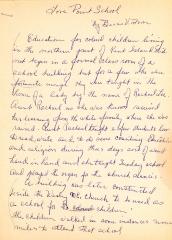 Love Point School
by Bessie W. Brown
Education for colored children living
in the northern part of Kent Island did
not begin in a formal class room of a
school building but for a few who were
fortunate enough they were taught in the
home of a lady by the name of Rachel
Aunt Rachel as she was known received
her learning from the white family whom she was
raised. Aunt Rachel taught a few students how
to read, write and do some counting. Education
and religion during those days went
hand in hand and she taught Sunday school
and played the organ for the church classes.
A building was later constructed
beside the Church to be used as
a school for children
the children walked in some instances
miles to attend that school